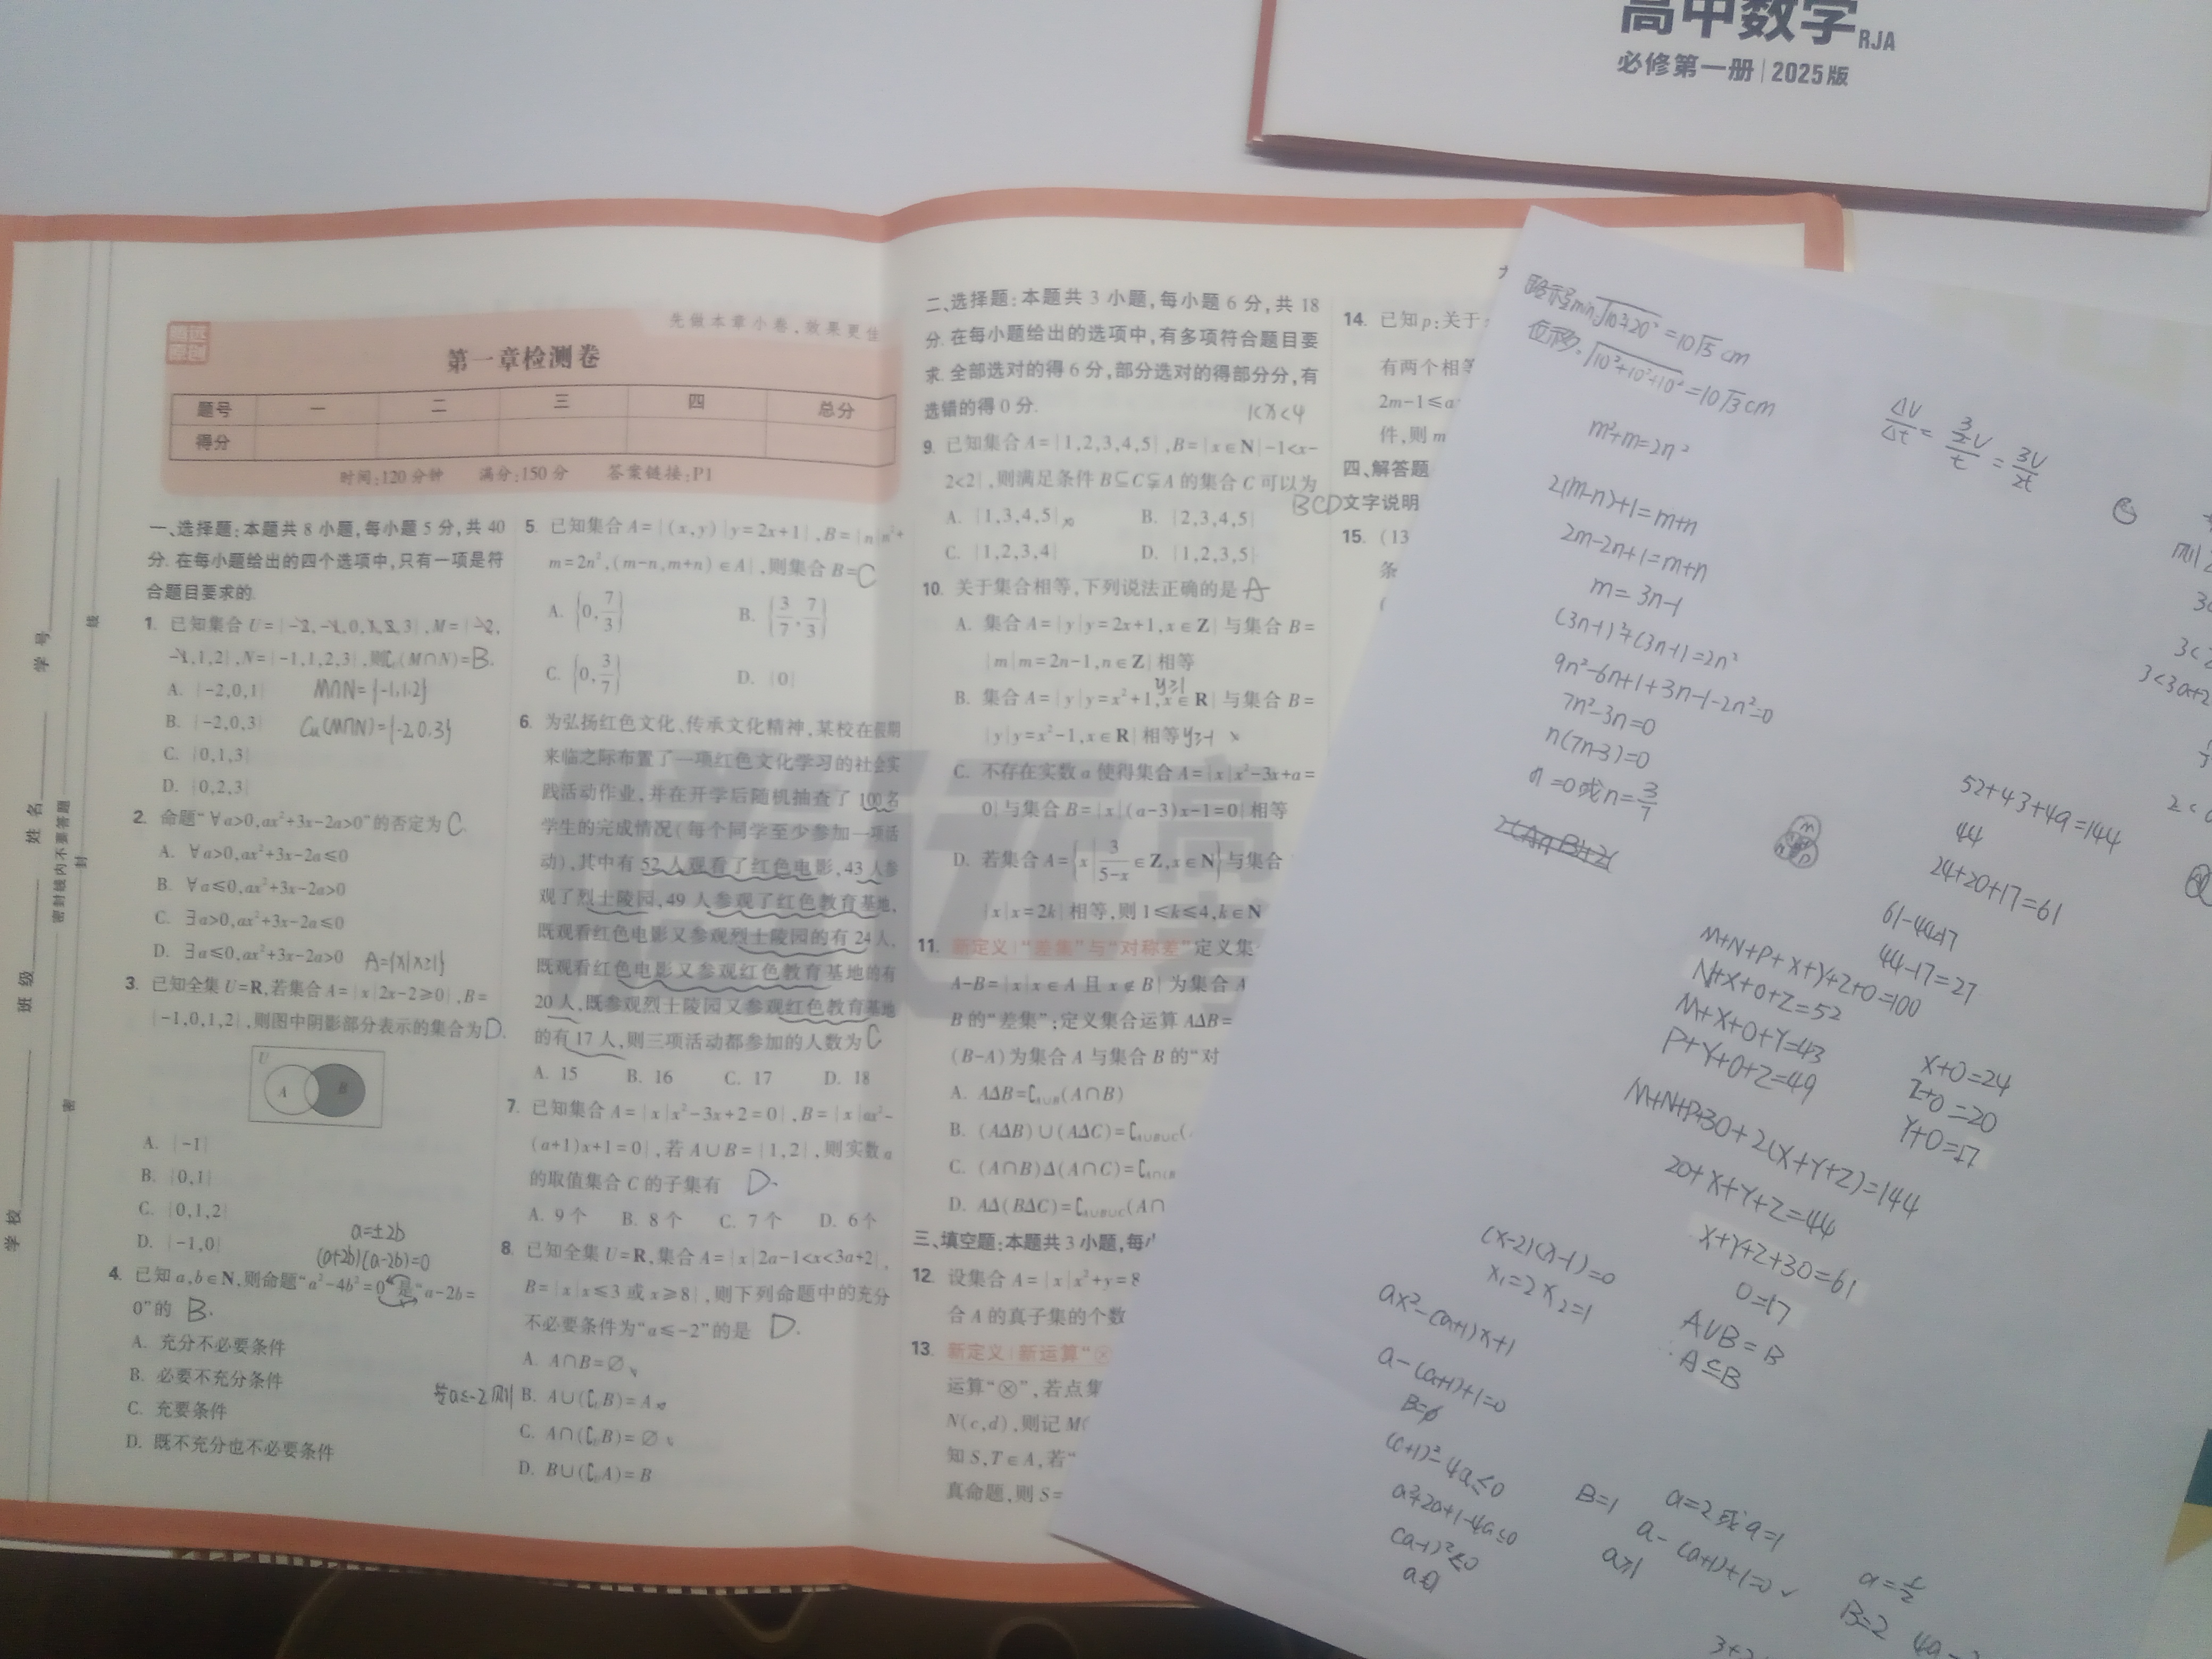 高中数学RJA
必修第一册|2025版
先做本章小卷,效果更佳
第一章检测卷
题号 一 二 三 四 总分
得分
时间:120分钟 满分:150分 答案链接:P1
学校 班级 姓名 学号
密封线内不要答题
密 封 线
一、选择题:本题共8小题,每小题5分,共40
分.在每小题给出的四个选项中,只有一项是符
合题目要求的.
1. 已知集合U={-2,-1,0,1,2,3},M={-2,
-1,1,2},N={-1,1,2,3},则∁U(M∩N)=B.
A. {-2,0,1} M∩N={-1,1,2}
B. {-2,0,3} Cu(M∩N)={-2,0,3}
C. {0,1,3}
D. {0,2,3}
2. 命题“∀a>0,ax²+3x-2a>0”的否定为C.
A. ∀a>0,ax²+3x-2a≤0
B. ∀a≤0,ax²+3x-2a>0
C. ∃a>0,ax²+3x-2a≤0
D. ∃a≤0,ax²+3x-2a>0 A={x|x≥1}
3. 已知全集U=R,若集合A={x|2x-2≥0},B=
{-1,0,1,2},则图中阴影部分表示的集合为D.
U
A B
A. {-1}
B. {0,1}
C. {0,1,2}
D. {-1,0}
a=±2b
(a+2b)(a-2b)=0
4. 已知a,b∈N,则命题“a²-4b²=0”是“a-2b=
0”的 B.
A. 充分不必要条件
B. 必要不充分条件
C. 充要条件
D. 既不充分也不必要条件
5. 已知集合A={(x,y)|y=2x+1},B={n|m²+
m=2n²,(m-n,m+n)∈A},则集合B=C
A. {0,7/3} B. {3/7,7/3}
C. {0,3/7} D. {0}
6. 为弘扬红色文化、传承文化精神,某校在假期
来临之际布置了一项红色文化学习的社会实
践活动作业,并在开学后随机抽查了100名
学生的完成情况(每个同学至少参加一项活
动),其中有52人观看了红色电影,43人参
观了烈士陵园,49人参观了红色教育基地,
既观看红色电影又参观烈士陵园的有24人,
既观看红色电影又参观红色教育基地的有
20人,既参观烈士陵园又参观红色教育基地
的有17人,则三项活动都参加的人数为C
A. 15 B. 16 C. 17 D. 18
7. 已知集合A={x|x²-3x+2=0},B={x|ax²-
(a+1)x+1=0},若A∪B={1,2},则实数a
的取值集合C的子集有 D.
A. 9个 B. 8个 C. 7个 D. 6个
8. 已知全集U=R,集合A={x|2a-1<x<3a+2},
B={x|x≤3或x≥8},则下列命题中的充分
不必要条件为“a≤-2”的是 D.
A. A∩B=∅
若a≤-2则 B. A∪(∁UB)=A
C. A∩(∁UB)=∅
D. B∪(∁UA)=B
二、选择题:本题共3小题,每小题6分,共18
分.在每小题给出的选项中,有多项符合题目要
求.全部选对的得6分,部分选对的得部分分,有
选错的得0分.
1<x<4
9. 已知集合A={1,2,3,4,5},B={x∈N|-1<x-
2<2},则满足条件B⊆C⫋A的集合C可以为
BCD
A. {1,3,4,5} B. {2,3,4,5}
C. {1,2,3,4} D. {1,2,3,5}
10. 关于集合相等,下列说法正确的是A
A. 集合A={y|y=2x+1,x∈Z}与集合B=
{m|m=2n-1,n∈Z}相等
y≥1
B. 集合A={y|y=x²+1,x∈R}与集合B=
{y|y=x²-1,x∈R}相等 y≥-1 ×
C. 不存在实数a使得集合A={x|x²-3x+a=
0}与集合B={x|(a-3)x-1=0}相等
D. 若集合A={x|3/(5-x)∈Z,x∈N}与集合
{x|x=2k}相等,则1≤k≤4,k∈N
11. 新定义|“差集”与“对称差”定义集
A-B={x|x∈A且x∉B}为集合A
B的“差集”;定义集合运算AΔB=
(B-A)为集合A与集合B的“对
A. AΔB=∁A∪B(A∩B)
B. (AΔB)∪(AΔC)=∁A∪B∪C(
C. (A∩B)Δ(A∩C)=∁A∩(B
D. AΔ(BΔC)=∁A∪B∪C(A∩
三、填空题:本题共3小题,每小
12. 设集合A={x|x²+y=8
合A的真子集的个数
13. 新定义|新运算“⊗”
运算“⊗”,若点集
N(c,d),则记M(
知S,T∈A,若“
真命题,则S=
14. 已知p:关于
有两个相等
2m-1≤a
件,则m
四、解答题
文字说明
15. (13
条
(
路程min:√10²+20²=10√5cm
位移:√10²+10²+10²=10√3cm
m²+m=2n²
2(m-n)+1=m+n
2m-2n+1=m+n
m=3n-1
(3n-1)²+(3n-1)=2n²
9n²-6n+1+3n-1-2n²=0
7n²-3n=0
n(7n-3)=0
n=0或n=3/7
ΔV/Δt=(3/2V)/t=3V/2t
m n p
52+43+49=144
44
24+20+17=61
61-44=17
44-17=27
M+N+P+X+Y+Z+O=100
N+X+O+Z=52
M+X+O+Y=43
P+Y+O+Z=49
X+O=24
Z+O=20
Y+O=17
M+N+P+3O+2(X+Y+Z)=144
2O+X+Y+Z=44
X+Y+Z+3O=61
O=17
A∪B=B
∴A⊆B
(x-2)(x-1)=0
x₁=2 x₂=1
ax²-(a+1)x+1
a-(a+1)+1=0
B=∅
(a+1)²-4a≤0
a²+2a+1-4a≤0
(a-1)²≤0
B=1 a=2或a=1
a-(a+1)+1=0 ✓
a=1/2
B=2